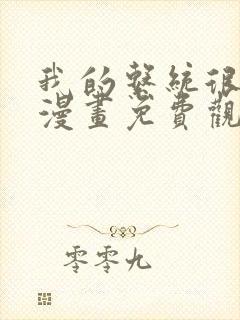 我的整統很
漫畫免費觀
零零九